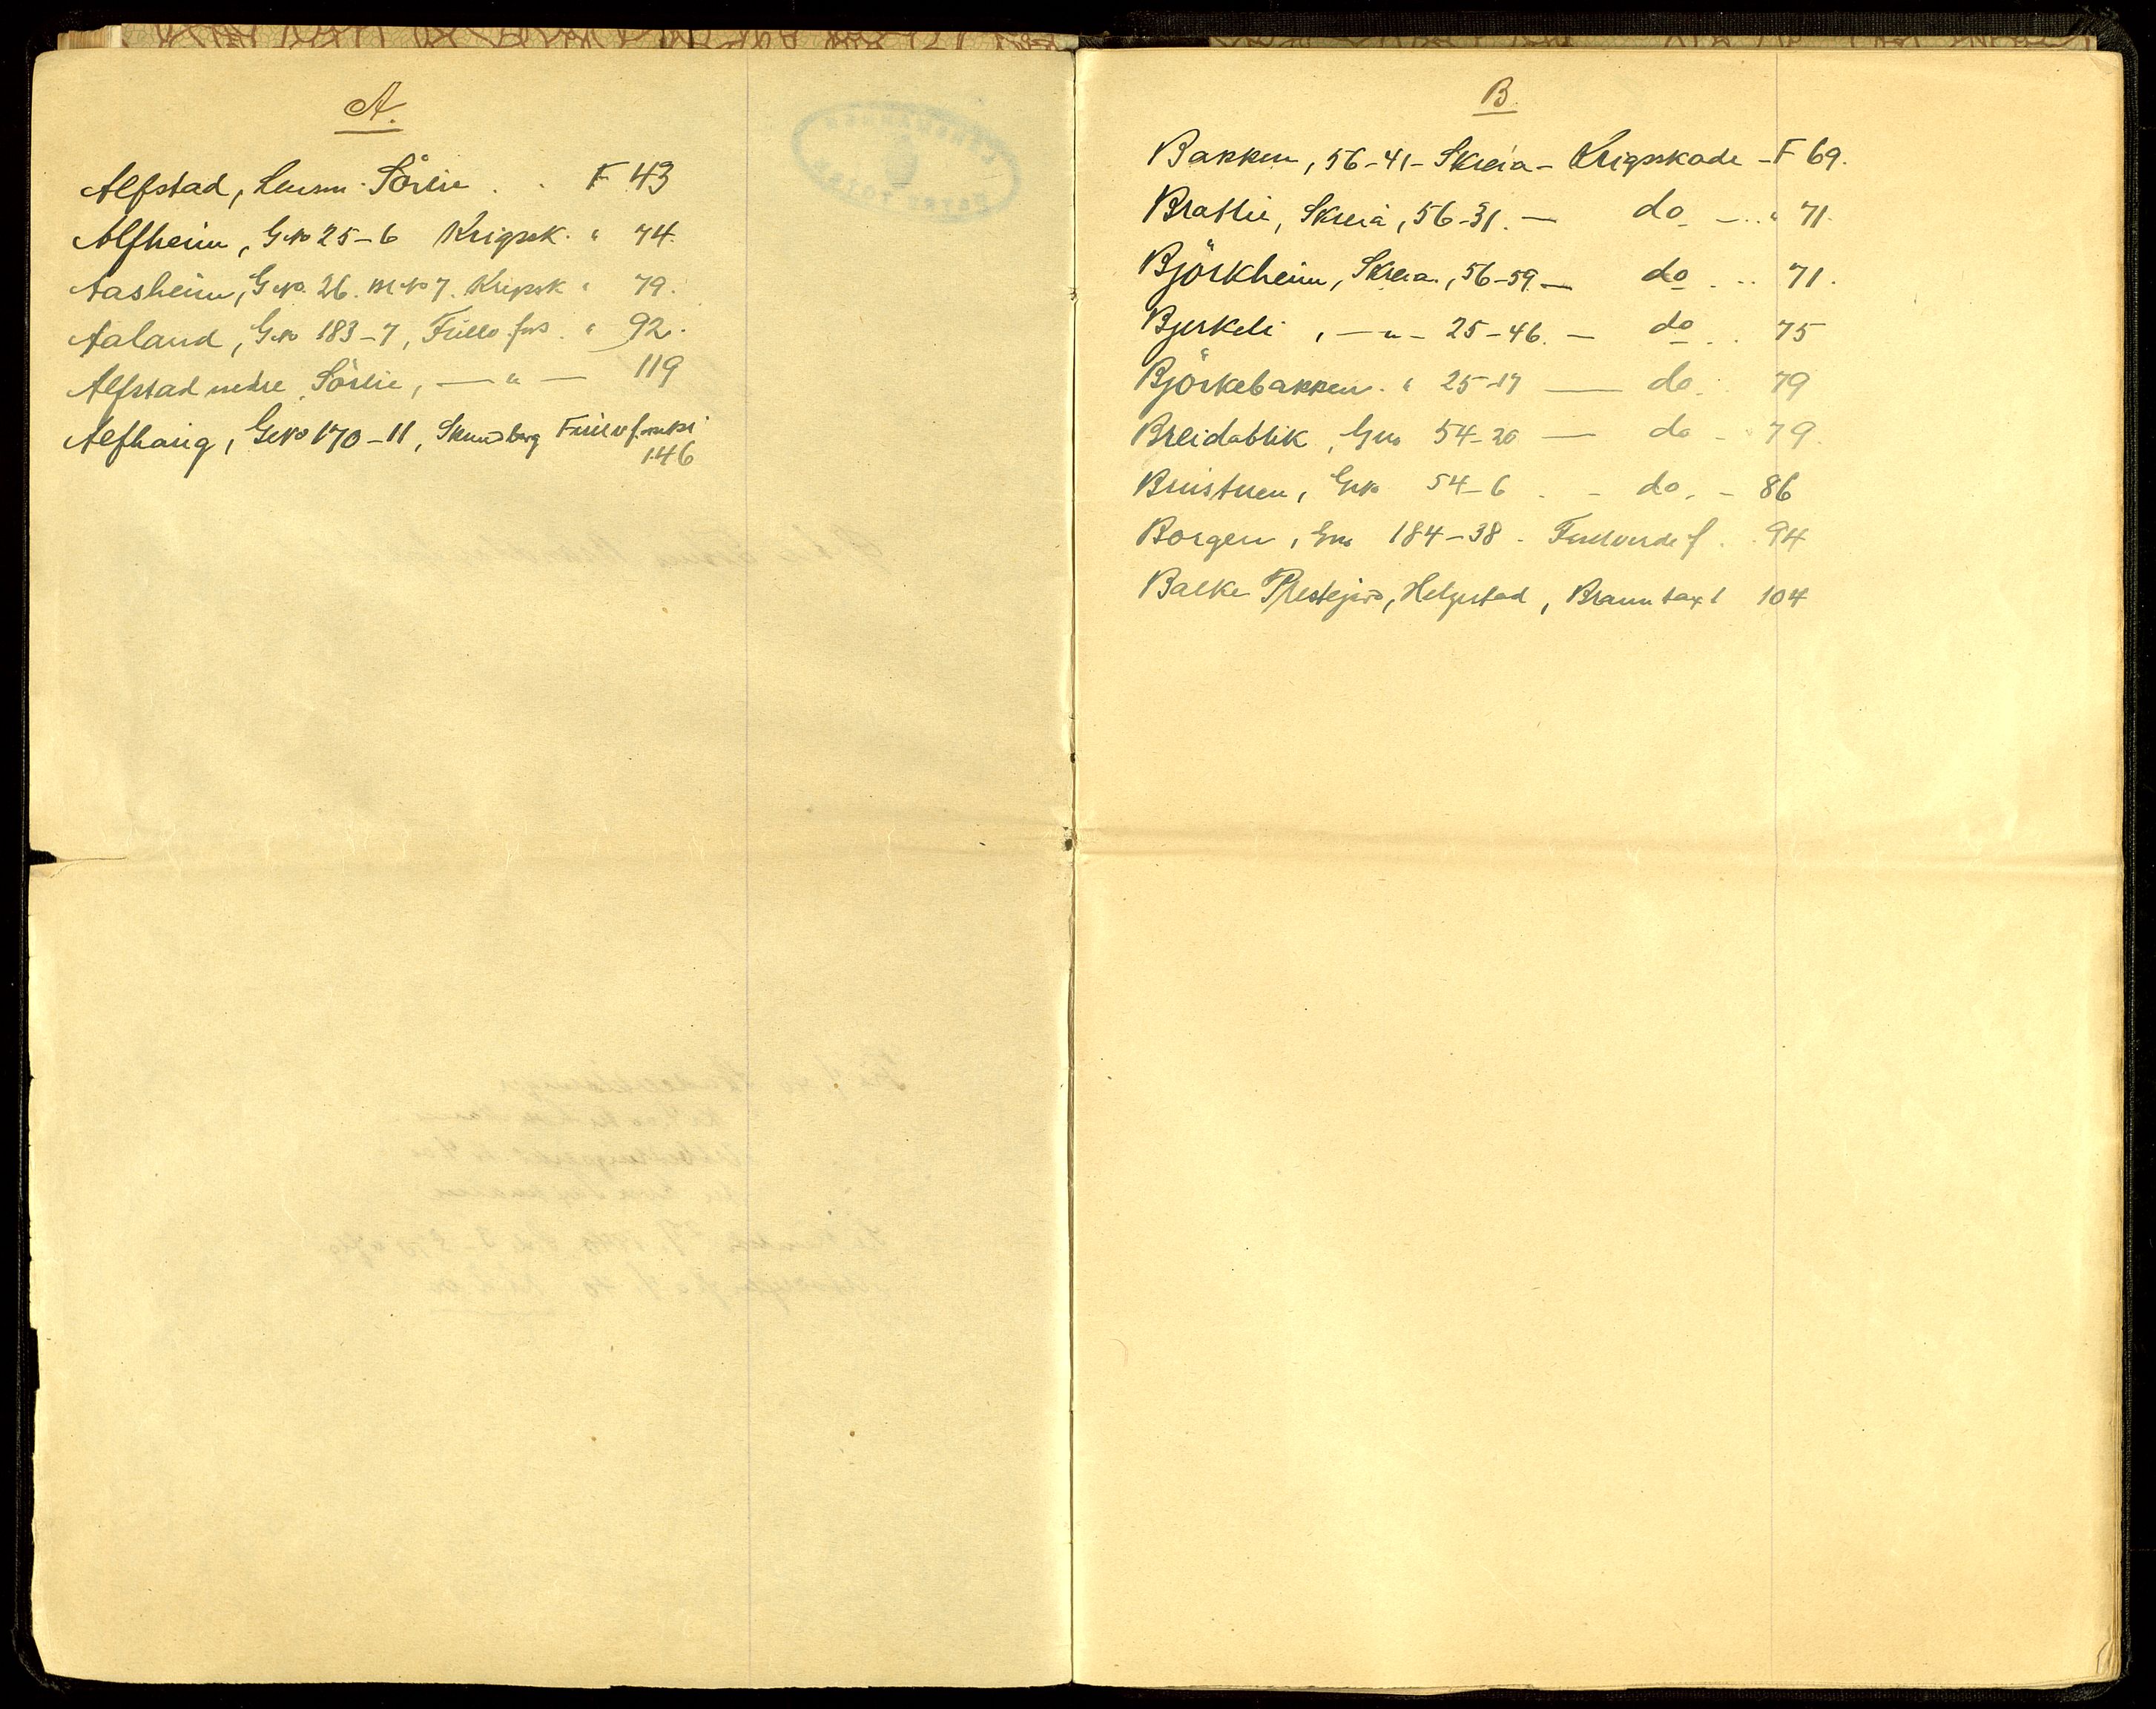 A.
Alfstad, Lensm. Sörlie . . F 43
Alfheim, GNo 25-6 Krigssk. " 74.
Aasheim, GNo. 26. BrNo 7. Krigssk " 79.
Aaland, GNo 183-7, " 92.
Alfstad nedre Sörlie, — " — 119
Alfhaug, GNo 170-11,
146
B.
Bakken, 56-41- Skreia - Krigsskade - F 69.
Bratlie, Skreia, 56-31. — do - .. " 71.
Björkheim, Skreia., 56-59.— do . .. 71.
Bjerkeli , — " - 25-46. — do . . 75
Björkebakken. " 25-17 — do . 79
Breidablik, Gno 54-20 — do - " 79.
Bruistuen, GNo 54-6 . - do. - 86
Borgen, Gno 184-38 - Fullverdif. . 94
Balke Prestejord, Helgestad, Branntaxt 104